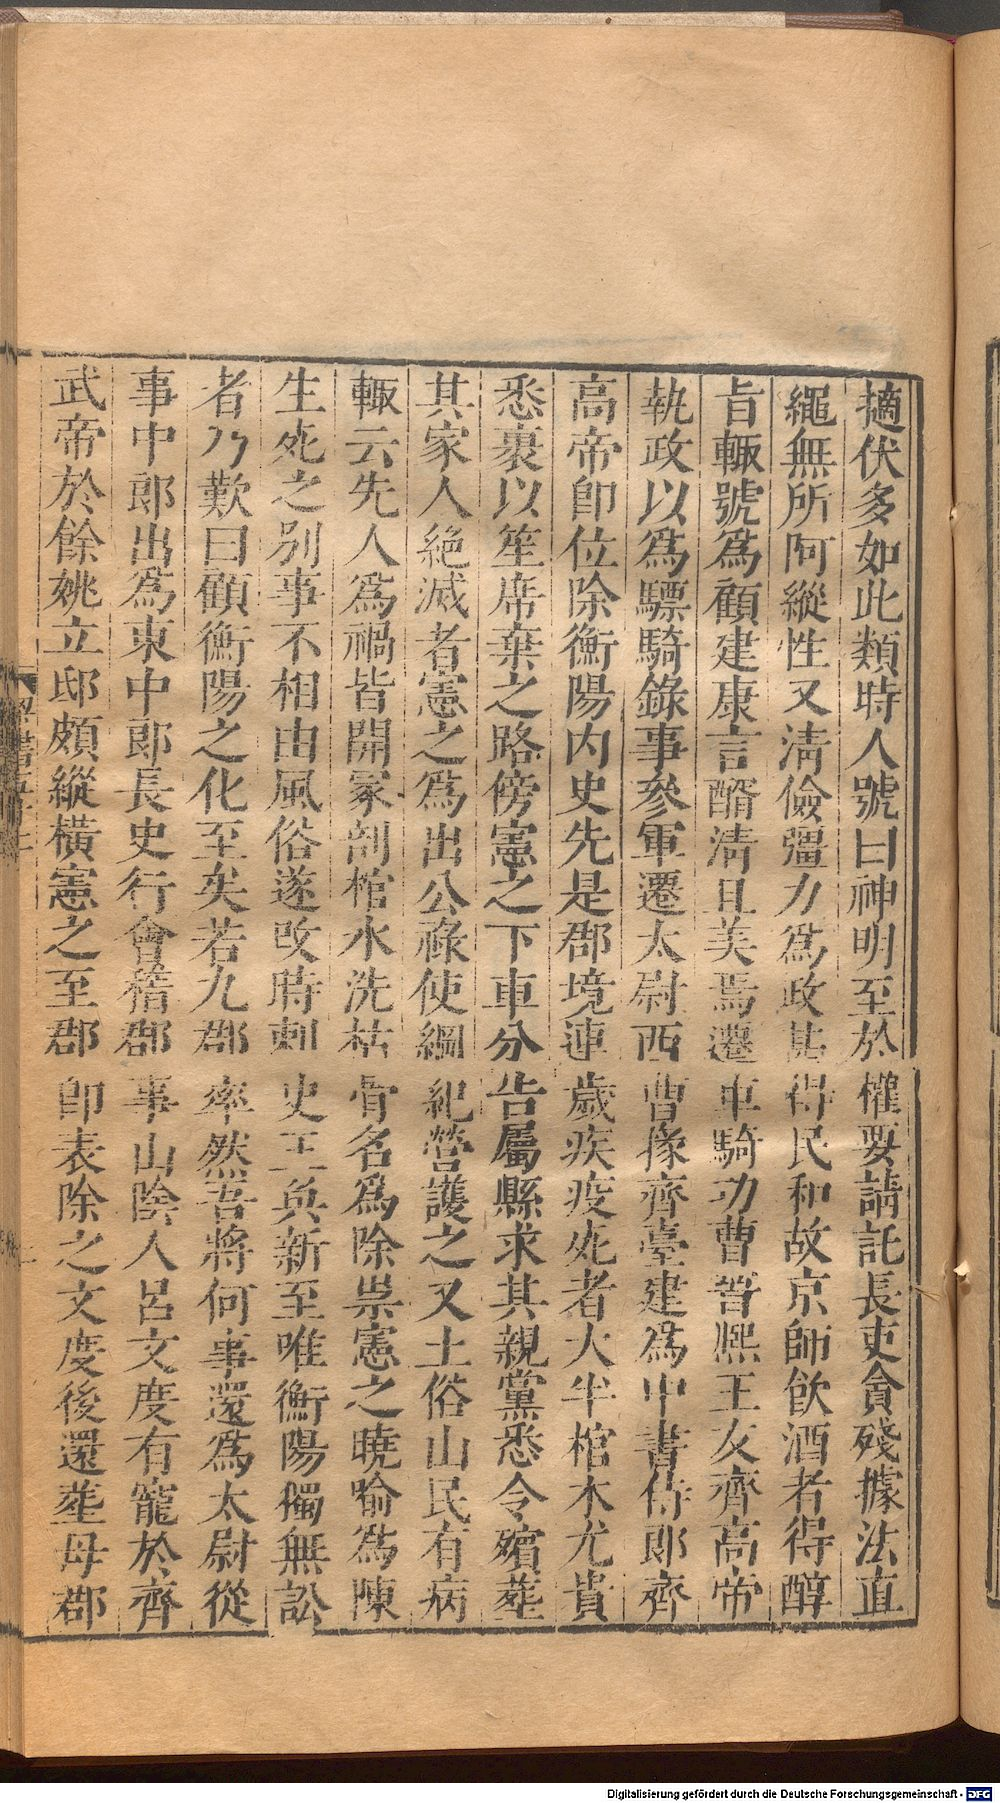 擿伏多如此類時人號曰神明至於權要請託長吏貪殘據法直
繩無所阿縱性又清儉彊力爲政甚得民和故京師飲酒者得醇
旨輒號爲顧建康言醑清且美焉遷車騎功曹晉熙王友齊高帝
執政以爲驃騎錄事參軍遷太尉西曹掾齊臺建爲中書侍郎齊
高帝卽位除衡陽內史先是郡境連歲疾疫死者大半棺木尤貴
悉裹以笙席棄之路傍憲之下車分告屬縣求其親黨悉令殯葬
其家人絕滅者憲之爲出公祿使綱紀營護之又土俗山民有病
輒云先人爲禍皆開冢剖棺水洗枯骨名爲除祟憲之曉喻爲陳
生死之別事不相由風俗遂改時刺史王奐新至唯衡陽獨無訟
者乃歎曰顧衡陽之化至矣若九郡率然吾將何事還爲太尉從
事中郎出爲東中郎長史行會稽郡事山陰人呂文度有寵於齊
武帝於餘姚立邸頗縱橫憲之至郡卽表除之文度後還葬母郡
Digitalisierung gefördert durch die Deutsche Forschungsgemeinschaft - DFG